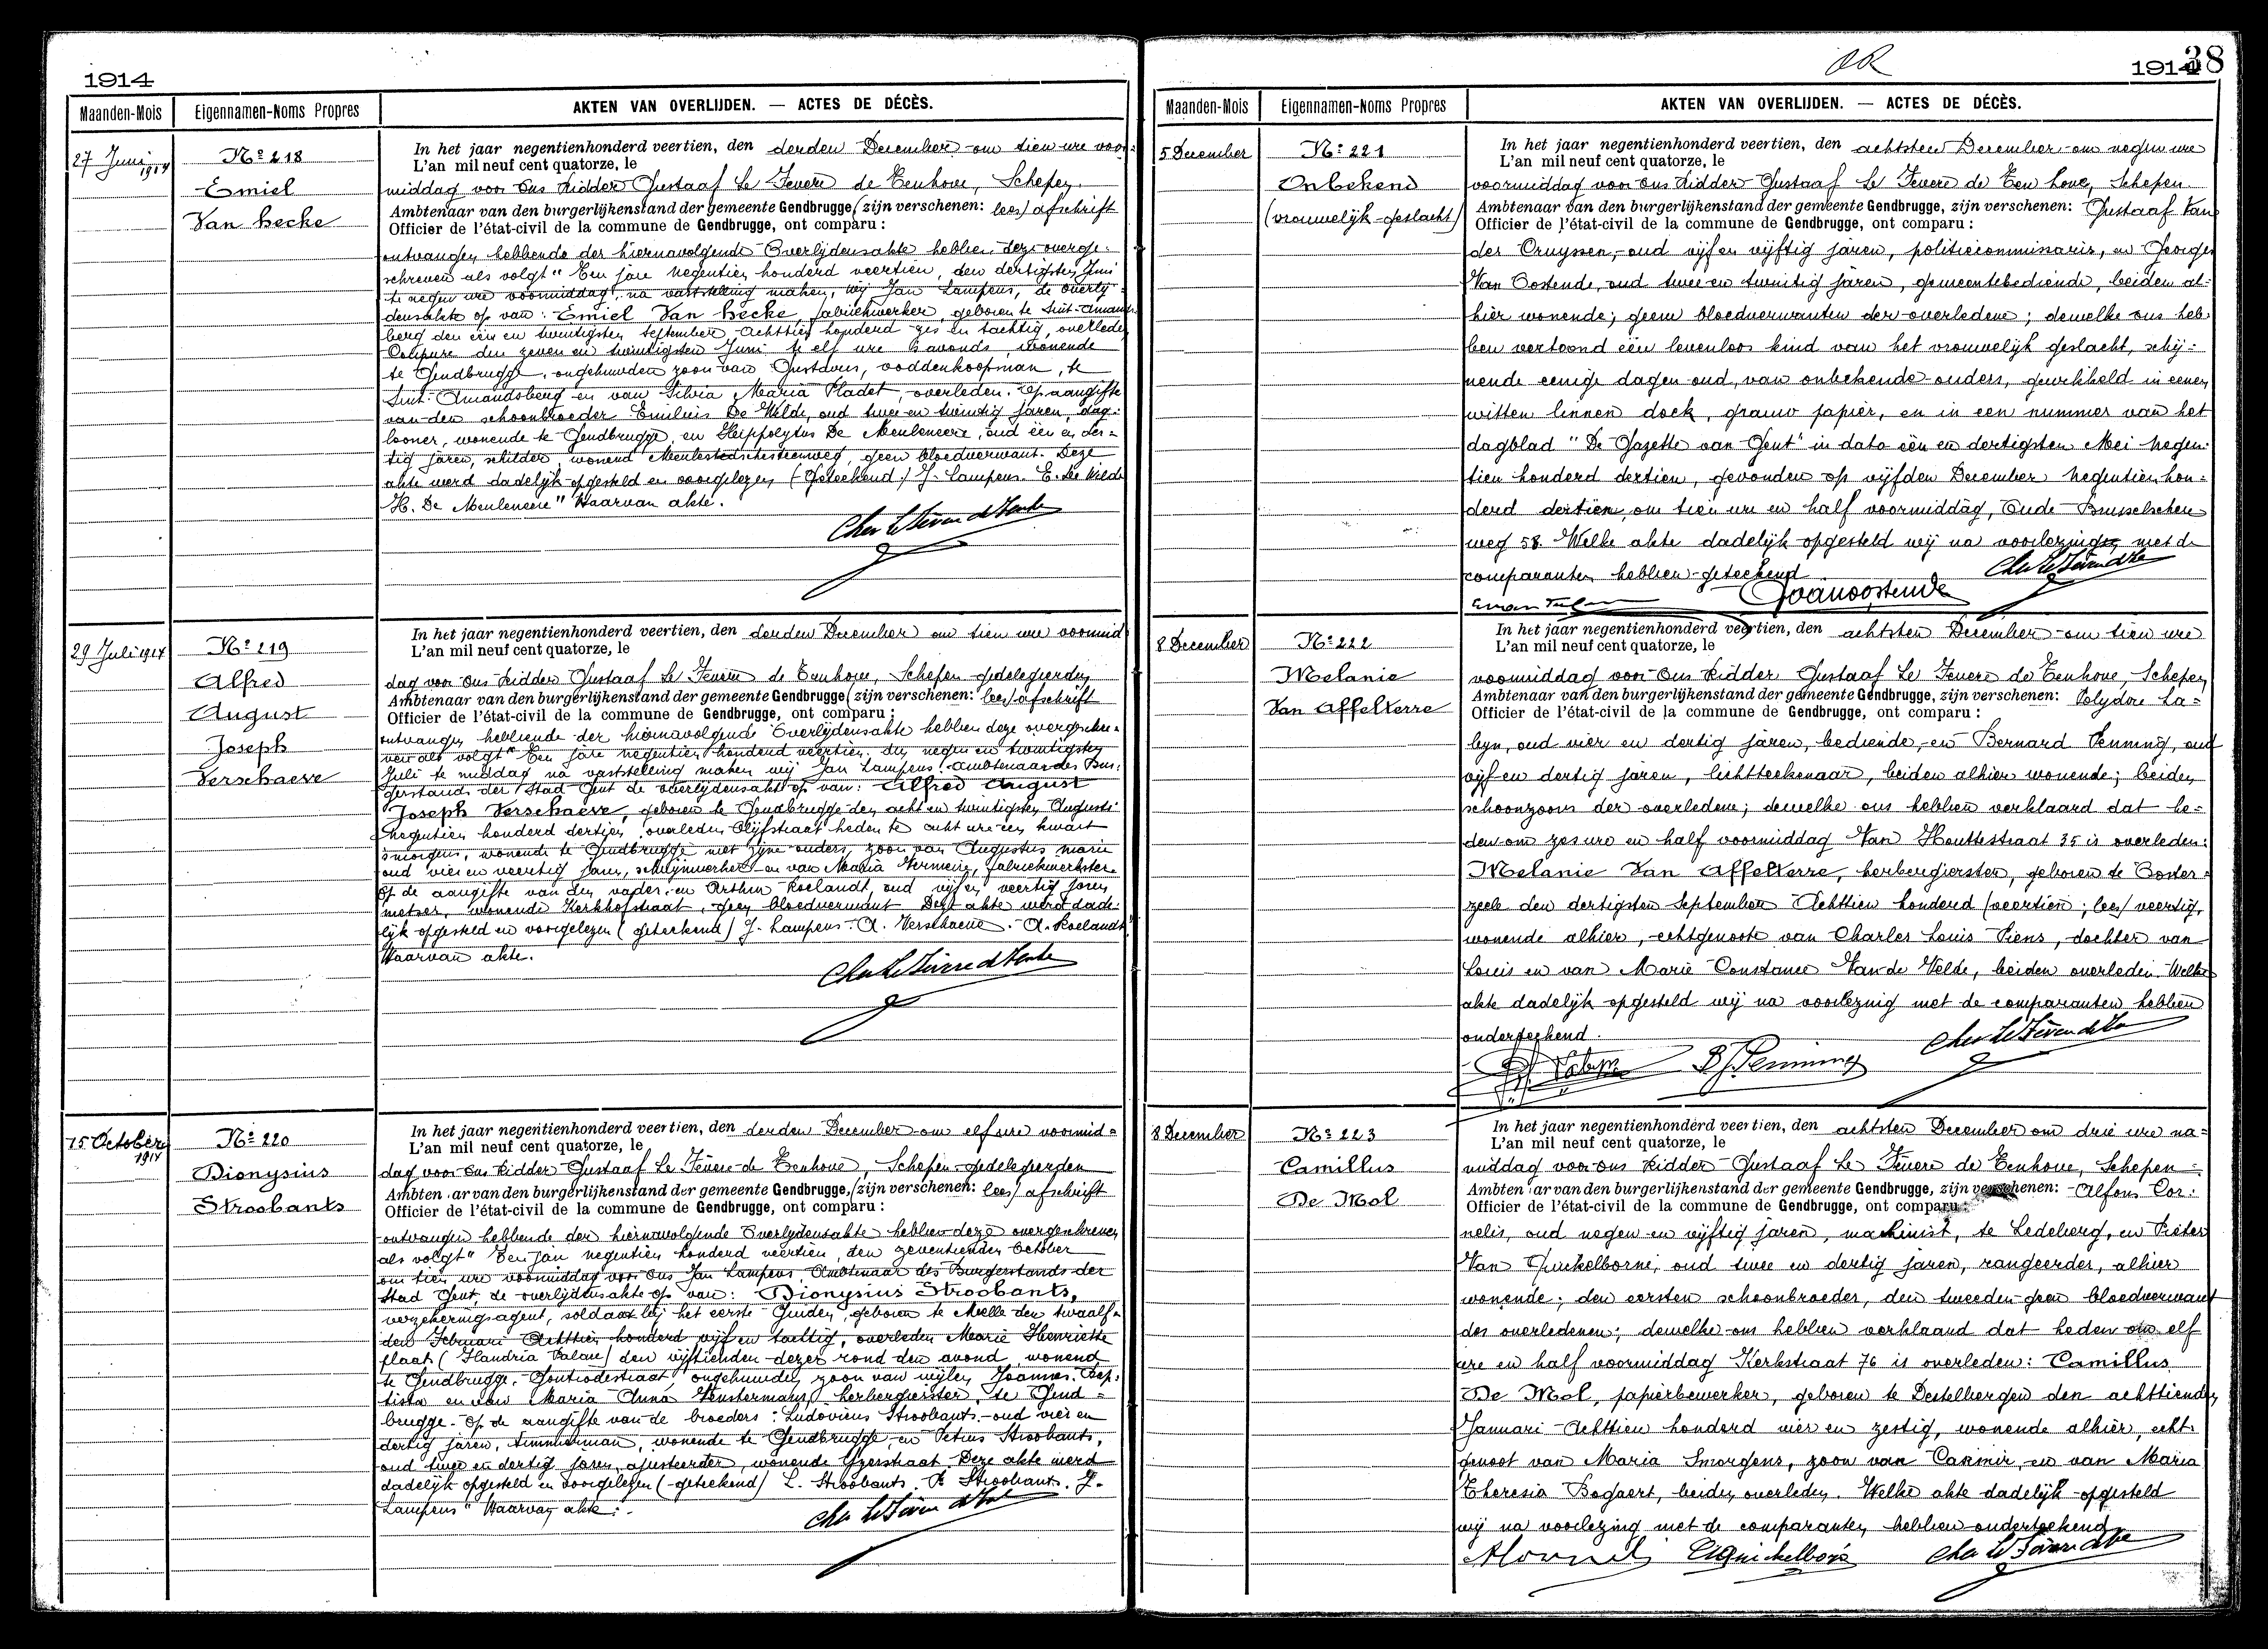 1914
Maanden-Mois
Eigennamen-Noms Propres
AKTEN VAN OVERLIJDEN. — ACTES DE DÉCÈS.
27 Juni 1914
No 218
Emiel
Van hecke
In het jaar negentienhonderd veertien, den derden December om tien ure voor-
L'an mil neuf cent quatorze, le
middag voor Ons Ridder Gustaaf Le Fevere de Tenhove, Schepen
Ambtenaar van den burgerlijkenstand der gemeente Gendbrugge, (zijn verschenen: lees) afschrift
Officier de l'état-civil de la commune de Gendbrugge, ont comparu :
ontvangen hebbende der hiernavolgende Overlijdensakte hebben deze overge-
schreven als volgt "Ten jare negentien honderd veertien, den dertigsten Juni
te negen ure voormiddag, na vaststelling maken, wij Jan Lampens, de overlij-
densakte op van: Emiel Van hecke, fabriekwerker, geboren te Sint-Amands-
berg den één en twintigsten September Achttien honderd zes en tachtig, overleden
Coupure den zeven en twintigsten Juni te elf ure 's avonds, wonende
te Gendbrugge, ongehuwden zoon van Gustavus, voddenkoopman, te
Sint-Amandsberg en van Silvia Maria Pladet, overleden. Op aangifte
van den schoonbroeder Emilius De Wilde, oud twee en twintig jaren, dag-
looner, wonende te Gendbrugge, en Heippolytus De Meulemeere, oud één en der-
tig jaren, schilder, wonend Meulestedschesteenweg, geen bloedverwant. Deze
akte werd dadelijk opgesteld en voorgelezen (Geteekend:) J. Lampens. E. De Wilde
H. De Meulemeere" Waarvan akte.
29 Juli 1914
No 219
Alfred
August
Joseph
Verschaeve
In het jaar negentienhonderd veertien, den derden December om tien ure voormid
L'an mil neuf cent quatorze, le
dag voor Ons Ridder Gustaaf Le Fevere de Tenhove, Schepen gedelegeerden
Ambtenaar van den burgerlijkenstand der gemeente Gendbrugge, (zijn verschenen: lees) afschrift
Officier de l'état-civil de la commune de Gendbrugge, ont comparu :
ontvangen hebbende der hiernavolgende Overlijdensakte hebben deze overgeschre-
ven als volgt "Ten jare negentien honderd veertien den negen en twintigsten
Juli te middag na vaststelling maken wij Jan Lampens Ambtenaar des Bur-
gerstands der Stad Gent de overlijdensakte op van: Alfred August
Joseph Verschaeve, geboren te Gendbrugge den acht en twintigsten Augusti
negentien honderd dertien, overleden Olijfstraat heden te acht ure een kwart
smorgens, wonende te Gendbrugge met zijne ouders, zoon van Augustus Marie
oud vier en veertig jaren, schrijnwerker en van Maria Vermeire, fabriekwerkster.
Op de aangifte van den vader en Arthur Roelandt, oud vijf en veertig jaren
metser, wonende Kerkhofstraat, geen bloedverwant. Deze akte werd dade-
lijk opgesteld en voorgelezen (geteekend) J. Lampens. A. Verschaeve. A. Roelandt"
Waarvan akte.
15 October 1914
No 220
Dionysius
Stroobants
In het jaar negentienhonderd veertien, den derden December om elf ure voormid-
L'an mil neuf cent quatorze, le
dag voor Ons Ridder Gustaaf Le Fevere de Tenhove, Schepen gedelegeerden
Ambtenaar van den burgerlijkenstand der gemeente Gendbrugge, (zijn verschenen: lees) afschrift
Officier de l'état-civil de la commune de Gendbrugge, ont comparu :
ontvangen hebbende der hiernavolgende Overlijdensakte hebben deze overgeschreven
als volgt "Ten jare negentien honderd veertien, den zeventienden October
om tien ure voormiddag voor Ons Jan Lampens Ambtenaar des Burgerstands der
Stad Gent, de overlijdensakte op van: Dionysius Stroobants,
verzekeringsagent, soldaat bij het eerste Guiden, geboren te Melle den twaalf-
den Februari Achttien honderd vijf en tachtig, overleden Marie Henriette
plaat (Flandria Palace) den vijftienden dezer rond den avond, wonend
te Gendbrugge, Gontrodestraat, ongehuwden zoon van wijlen Joannes Bap-
tista en van Maria Anna Venstermans, herbergierster, te Gend-
brugge. Op de aangifte van de broeders: Ludovicus Stroobants, oud vier en
dertig jaren, timmerman, wonende te Gendbrugge en Petrus Stroobants,
oud twee en dertig jaren, ajusteerder, wonende Yzerstraat. Deze akte werd
dadelijk opgesteld en voorgelezen (geteekend) L. Stroobants. P. Stroobants. J.
Lampens" Waarvan akte.
1914
38
Maanden-Mois
Eigennamen-Noms Propres
AKTEN VAN OVERLIJDEN. — ACTES DE DÉCÈS.
5 December
No 221
Onbekend
(vrouwelijk geslacht)
In het jaar negentienhonderd veertien, den achtsten December om negen ure
L'an mil neuf cent quatorze, le
voormiddag voor ons Ridder Gustaaf Le Fevere de Ten hove, Schepen
Ambtenaar van den burgerlijkenstand der gemeente Gendbrugge, zijn verschenen: Gustaaf Van
Officier de l'état-civil de la commune de Gendbrugge, ont comparu :
der Cruyssen, oud vijf en vijftig jaren, politiecommissaris, en Georges
Van Oostende, oud twee en twintig jaren, gemeentebediende, beiden al-
hier wonende; geene bloedverwanten der overledene; dewelke ons heb-
ben vertoond één levenloos kind van het vrouwelijk geslacht, schij-
nende eenige dagen oud, van onbekende ouders, gewikkeld in eenen
witten linnen doek, grauw papier, en in een nummer van het
dagblad "De Gazette van Gent" in dato één en dertigsten Mei negen-
tien honderd dertien, gevonden op vijfden December negentien hon-
derd dertien, om tien ure en half voormiddag, Oude Brusselschen
weg 58. Welke akte dadelijk opgesteld wij na voorlezing met de
comparanten hebben geteekend
Gvanoostende
8 December
No 222
Melanie
Van Affelterre
In het jaar negentienhonderd veertien, den achtsten December om tien ure
L'an mil neuf cent quatorze, le
voormiddag voor Ons Ridder Gustaaf Le Fevere de Tenhove, Schepen
Ambtenaar van den burgerlijkenstand der gemeente Gendbrugge, zijn verschenen: Polydore La-
Officier de l'état-civil de la commune de Gendbrugge, ont comparu :
byn, oud vier en dertig jaren, bediende, en Bernard Penning, oud
vijf en dertig jaren, lichtteekenaar, beiden alhier wonende; beiden
schoonzoons der overledene; dewelke ons hebben verklaard dat he-
den om zes ure en half voormiddag Van Houttestraat 35 is overleden:
Melanie Van Affelterre, herbergierster, geboren te Ooster-
zeele den dertigsten September Achttien honderd (veertien; lees) veertig,
wonende alhier, echtgenoote van Charles Louis Piens, dochter van
Louis en van Marie Constance Van de Velde, beiden overleden. Welke
akte dadelijk opgesteld wij na voorlezing met de comparanten hebben
onderteekend.
8 December
No 223
Camillus
De Mol
In het jaar negentienhonderd veertien, den achtsten December om drie ure na-
L'an mil neuf cent quatorze, le
middag voor ons Ridder Gustaaf Le Fevere de Tenhove, Schepen
Ambtenaar van den burgerlijkenstand der gemeente Gendbrugge, zijn verschenen: Alfons Cor-
Officier de l'état-civil de la commune de Gendbrugge, ont comparu :
nelis, oud negen en vijftig jaren, machinist, te Ledeberg, en Pieter
Van Quickelborne, oud twee en dertig jaren, rangeerder, alhier
wonende; den eersten schoonbroeder, den tweeden geen bloedverwant
des overledenen; dewelke ons hebben verklaard dat heden om elf
ure en half voormiddag Kerkstraat 76 is overleden: Camillus
De Mol, papierbewerker, geboren te Destelbergen den achttienden
Januari Achttien honderd vier en zestig, wonende alhier, echt-
genoot van Maria Smorgens, zoon van Casimir en van Maria
Theresia Bogaert, beiden overleden. Welke akte dadelijk opgesteld
wij na voorlezing met de comparanten hebben onderteekend